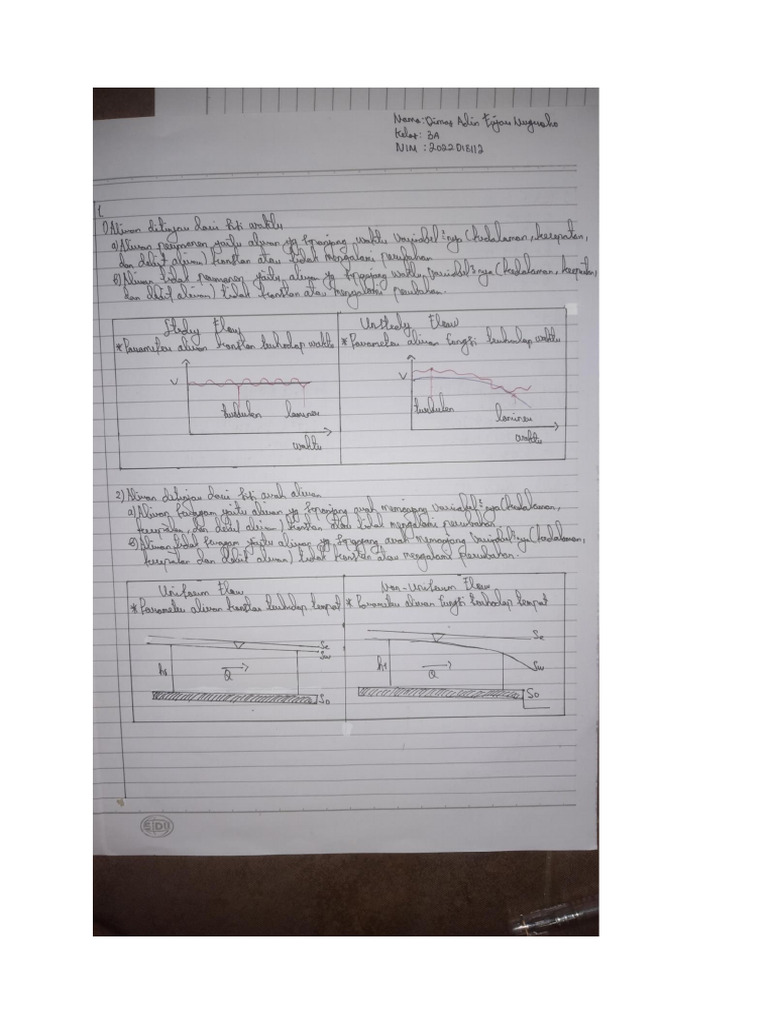 Nama: Dimas Adin Nugroho
Kelas: 3A
NIM : 2022018112
1.
1) Aliran ditinjau dari sisi waktu
a) Aliran permanen yaitu aliran yg sepanjang waktu variabel²nya (kedalaman, kecepatan,
dan debit aliran) konstan atau tidak mengalami perubahan
b) Aliran tidak permanen yaitu aliran yg sepanjang waktu variabel²nya (kedalaman, kecepatan,
dan debit aliran) tidak konstan atau mengalami perubahan.
Steady Flow
* Parameter aliran konstan terhadap waktu
V
turbulen laminer
waktu
Unsteady Flow
* Parameter aliran fungsi terhadap waktu
V
turbulen
laminer
waktu
2) Aliran ditinjau dari sisi arah aliran
a) Aliran seragam yaitu aliran yg sepanjang arah memanjang variabel²nya (kedalaman,
kecepatan, dan debit aliran) konstan atau tidak mengalami perubahan.
b) Aliran tidak seragam yaitu aliran yg sepanjang arah memanjang variabel²nya (kedalaman,
kecepatan dan debit aliran) tidak konstan atau mengalami perubahan.
Uniform Flow
* Parameter aliran konstan terhadap tempat
Se
Sw
Q
So
Non-Uniform Flow
* Parameter aliran fungsi terhadap tempat
Se
Q
Sw
So